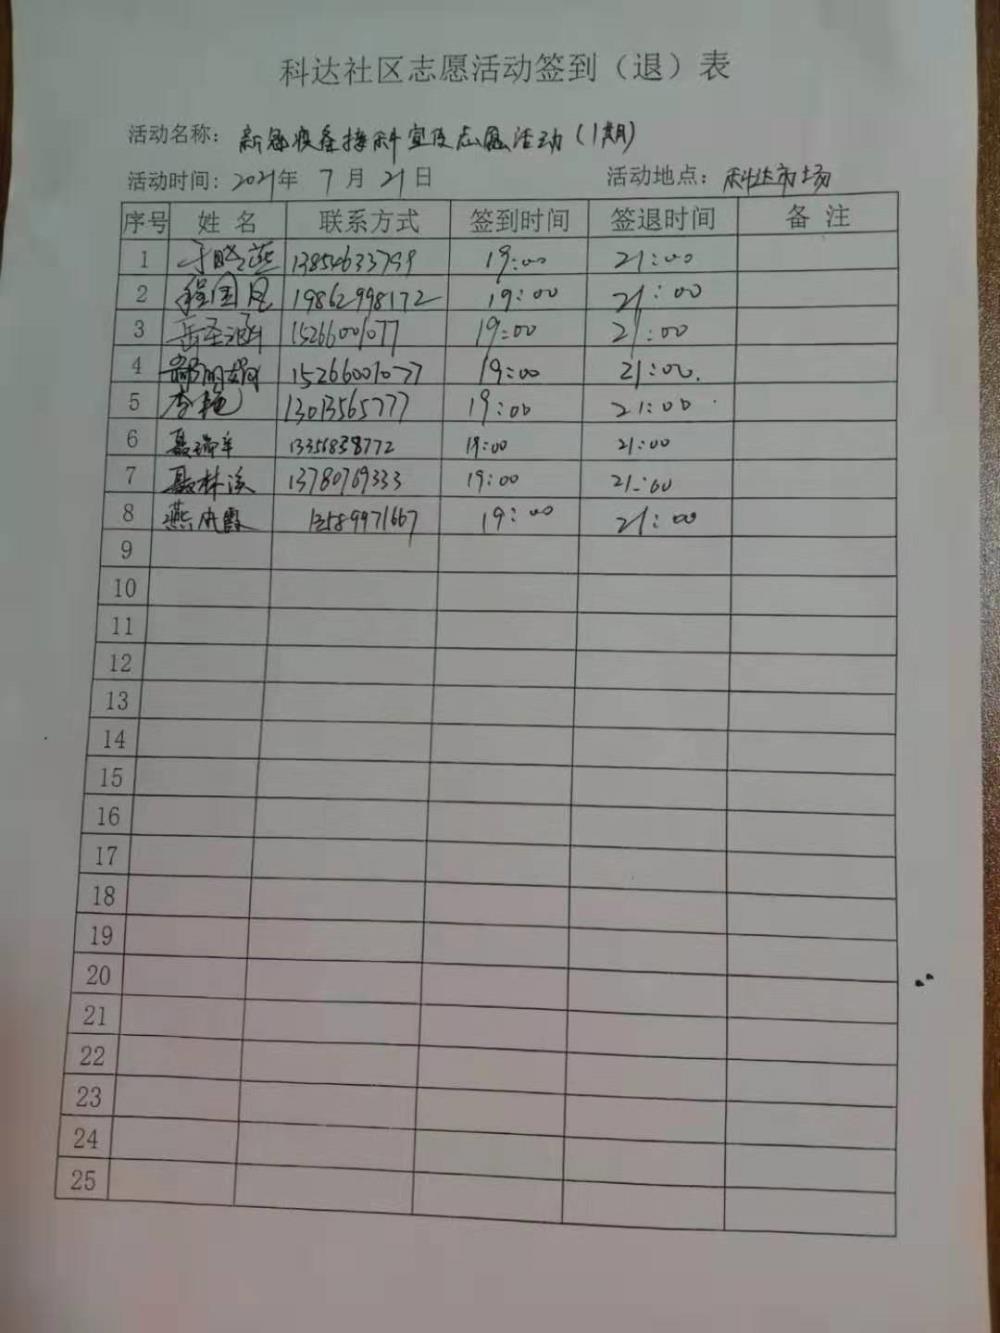 科达社区志愿活动签到（退）表
活动名称： 新冠疫苗接种宣传志愿活动（1期）
活动时间：2021年 7月21日 活动地点：科达市场
序号 姓名 联系方式 签到时间 签退时间 备注
1 于晓燕 13854633799 19:00 21:00
2 程国凤 19862998172 19:00 21:00
3 岳圣涵 15266001077 19:00 21:00
4 15266001077 19:00 21:00
5 李艳 13013565777 19:00 21:00
6 聂瑞年 13356838772 19:00 21:00
7 聂林溪 13780769333 19:00 21:00
8 燕凤霞 13589971667 19:00 21:00
9
10
11
12
13
14
15
16
17
18
19
20
21
22
23
24
25